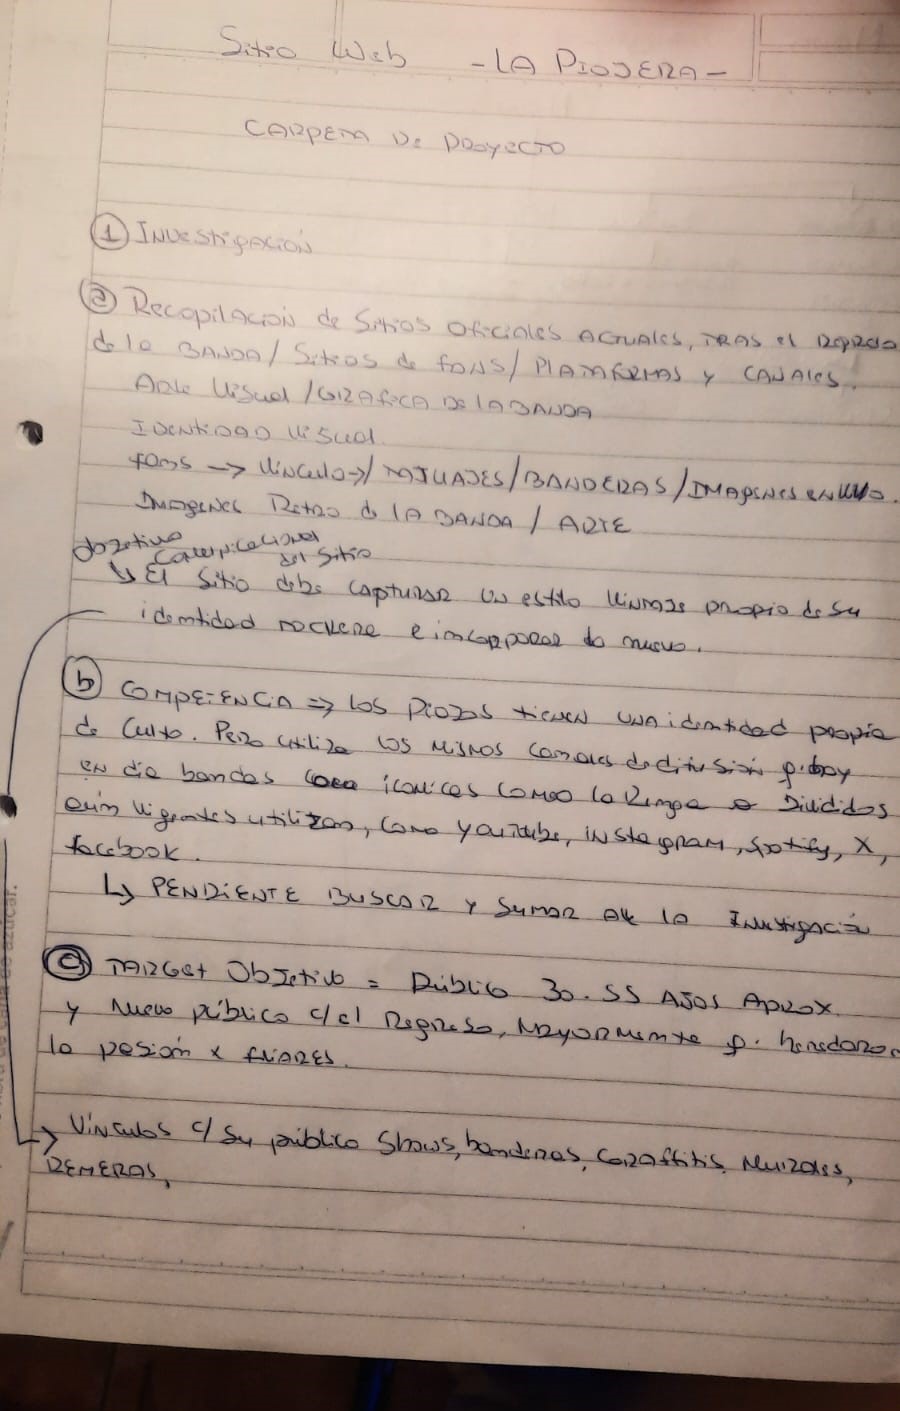 Sitio Web - LA PIOJERA -
CARPETA De PROYECTO
① INVEStigACIÓN
ⓐ Recopilación de Sitios Oficiales ACTUALES, TRAS el
de la BANDA / Sitios de fans / PLATAFORMAS y CANALES.
Arte Visual / GRAfiCA De lA BANDA
IDENTIDAD Visual
fans -> Vinculo -> / TATUAJES / BANDERAS / IMAgENES en
Imagenes Retro de lA BANDA / ARTE
Objetivo comunicacional del Sitio
↳ El Sitio debe CAPTURAR Un estilo Vintage propio de Su
identidad rockera e incorporar lo nuevo.
ⓑ COMPETENCIA => los Piojos tienen una identidad propia
de Culto. Pero utiliza los MISMOS Canales de difusión q. hoy
en dia bandas iconicas como la Renga o Divididos
aún Vigentes utilizan, como youtube, instagram, Spotify, X,
facebook.
↳ PENDIENTE BUSCAR y SUMAR A lA InVestigación
ⓒ TARGET Objetivo = Público 30-55 AÑOS Aprox.
y Nuevo público c/el Regreso, Mayormente q. heredaron
la pasión x
-> Vínculos c/ Su público Shows, banderas, Graffitis, Murales,
REMERAS,